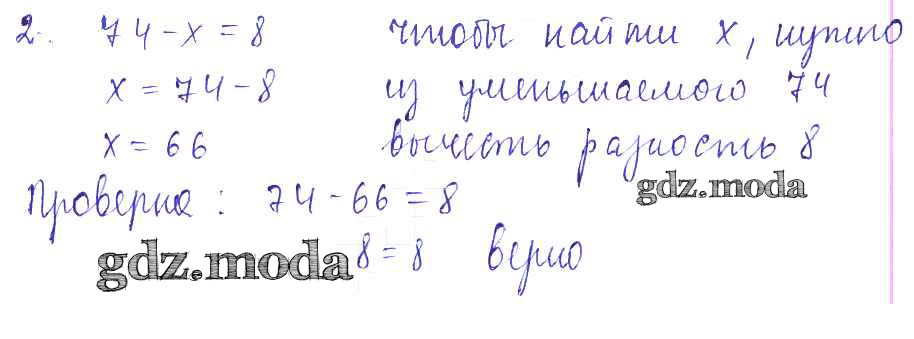 2. 74 - x = 8 чтобы найти x, нужно
x = 74 - 8 из уменьшаемого 74
x = 66 вычесть разность 8
gdz.moda
Проверка: 74 - 66 = 8
gdz.moda 8 = 8 верно